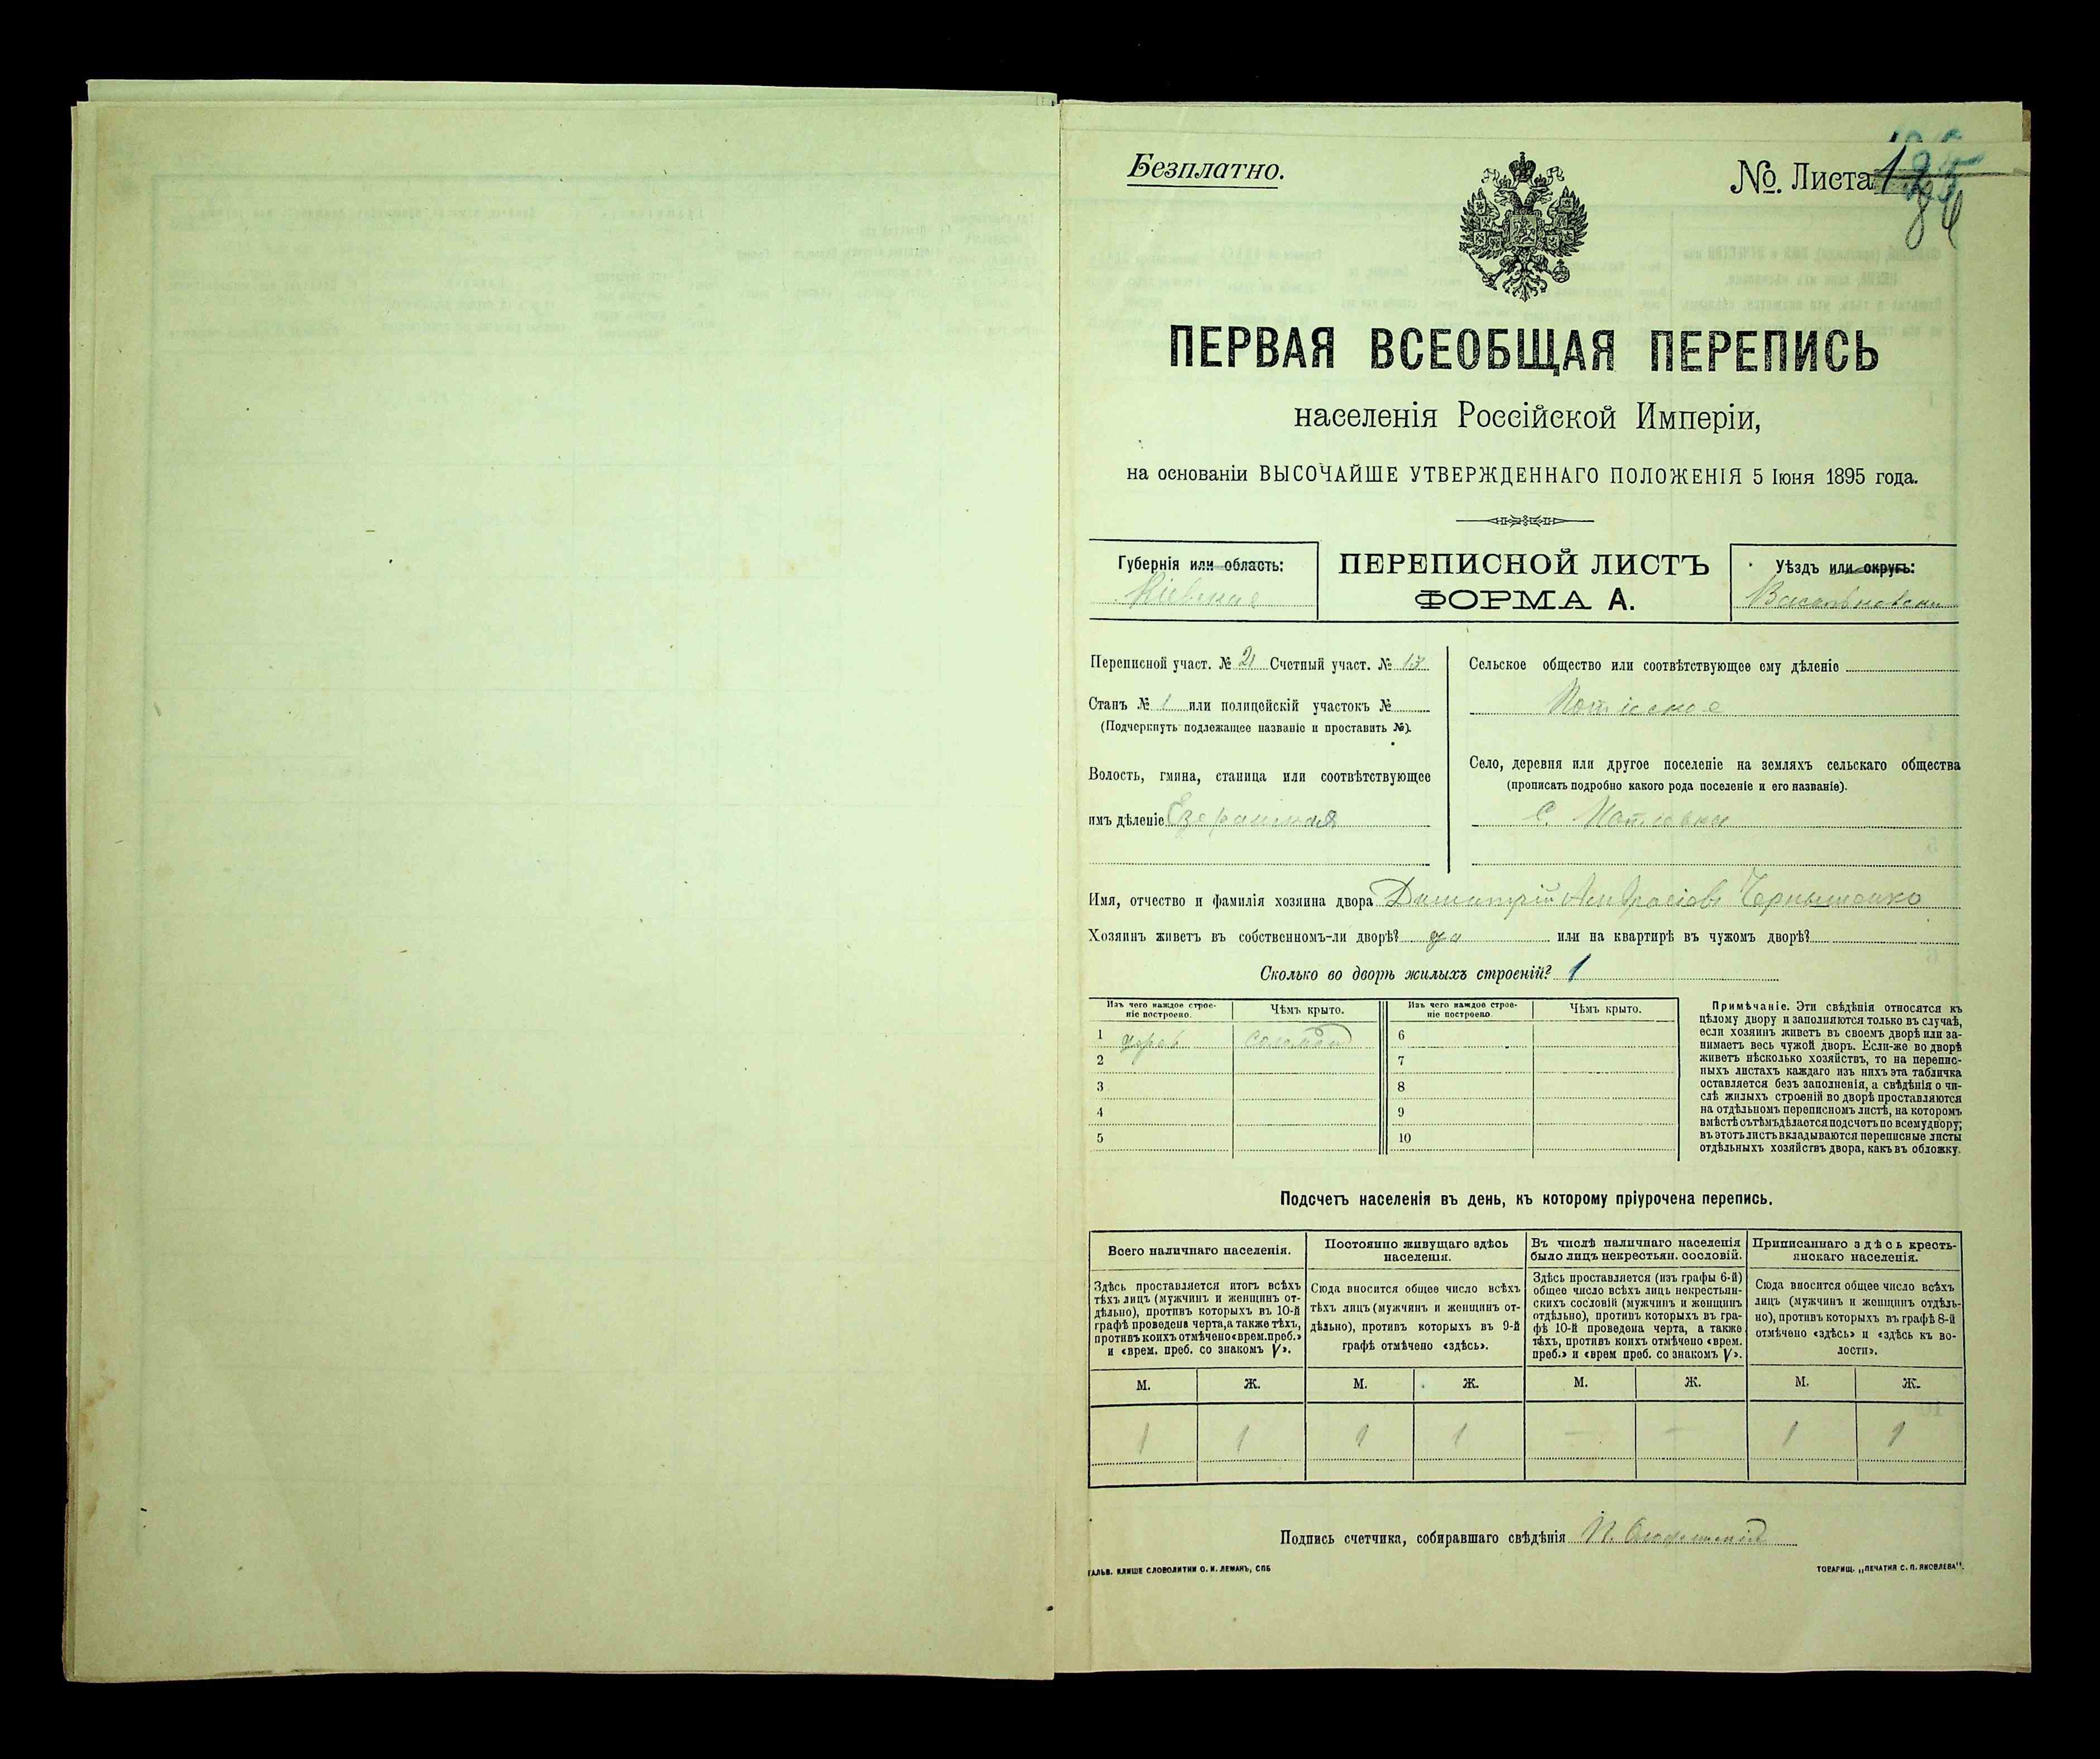 Безплатно.
№. Листа
ПЕРВАЯ ВСЕОБЩАЯ ПЕРЕПИСЬ
населенія Россійской Имперіи,
на основаніи ВЫСОЧАЙШЕ УТВЕРЖДЕННАГО ПОЛОЖЕНІЯ 5 Іюня 1895 года.
Губернія или область:
Кіевская
ПЕРЕПИСНОЙ ЛИСТЪ
ФОРМА А.
Уѣздъ или округъ:
Васильковскій
Переписной участ. № 21 Счетный участ. № 13
Станъ № 1 или полицейскій участокъ №
(Подчеркнуть подлежащее названіе и проставить №).
Волость, гмина, станица или соотвѣтствующее
имъ дѣленіе Езерянская
Сельское общество или соотвѣтствующее ему дѣленіе
Потіевское
Село, деревня или другое поселеніе на земляхъ сельскаго общества
(прописать подробно какого рода поселеніе и его названіе).
С. Потіевка
Имя, отчество и фамилія хозяина двора Димитрій Чернышенко
Хозяинъ живетъ въ собственномъ-ли дворѣ? да или на квартирѣ въ чужомъ дворѣ?
Сколько во дворѣ жилыхъ строеній? 1
Изъ чего каждое строе-
ніе построено.
Чѣмъ крыто.
Изъ чего каждое строе-
ніе построено
Чѣмъ крыто.
1 дерев соломой 6
2 7
3 8
4 9
5 10
Примѣчаніе. Эти свѣдѣнія относятся къ
цѣлому двору и заполняются только въ случаѣ,
если хозяинъ живетъ въ своемъ дворѣ или за-
нимаетъ весь чужой дворъ. Если-же во дворѣ
живетъ нѣсколько хозяйствъ, то на перепис-
ныхъ листахъ каждаго изъ нихъ эта табличка
оставляется безъ заполненія, а свѣдѣнія о чи-
слѣ жилыхъ строеній во дворѣ проставляются
на отдѣльномъ переписномъ листѣ, на которомъ
вмѣстѣ съ тѣмъ дѣлается подсчетъ по всему двору;
въ этотъ листъ вкладываются переписные листы
отдѣльныхъ хозяйствъ двора, какъ въ обложку.
Подсчетъ населенія въ день, къ которому пріурочена перепись.
Всего наличнаго населенія.
Здѣсь проставляется итогъ всѣхъ
тѣхъ лицъ (мужчинъ и женщинъ от-
дѣльно), противъ которыхъ въ 10-й
графѣ проведена черта, а также тѣхъ,
противъ коихъ отмѣчено «врем. преб.»
и «врем. преб. со знакомъ V».
Постоянно живущаго здѣсь
населенія.
Сюда вносится общее число всѣхъ
тѣхъ лицъ (мужчинъ и женщинъ от-
дѣльно), противъ которыхъ въ 9-й
графѣ отмѣчено «здѣсь».
Въ числѣ наличнаго населенія
было лицъ некрестьян. сословій.
Здѣсь проставляется (изъ графы 6-й)
общее число всѣхъ лицъ некрестьян-
скихъ сословій (мужчинъ и женщинъ
отдѣльно), противъ которыхъ въ гра-
фѣ 10-й проведена черта, а также
тѣхъ, противъ коихъ отмѣчено «врем.
преб.» и «врем преб. со знакомъ V».
Приписаннаго здѣсь кресть-
янскаго населенія.
Сюда вносится общее число всѣхъ
лицъ (мужчинъ и женщинъ отдѣль-
но), противъ которыхъ въ графѣ 8-й
отмѣчено «здѣсь» и «здѣсь къ во-
лости».
М. Ж. М. Ж. М. Ж. М. Ж.
1 1 1 1 — — 1 1
Подпись счетчика, собиравшаго свѣдѣнія П.
ГАЛЬВ. КЛИШЕ СЛОВОЛИТНИ О. И. ЛЕМАНЪ, СПБ
ТОВАРИЩ. „ПЕЧАТНЯ С. П. ЯКОВЛЕВА".